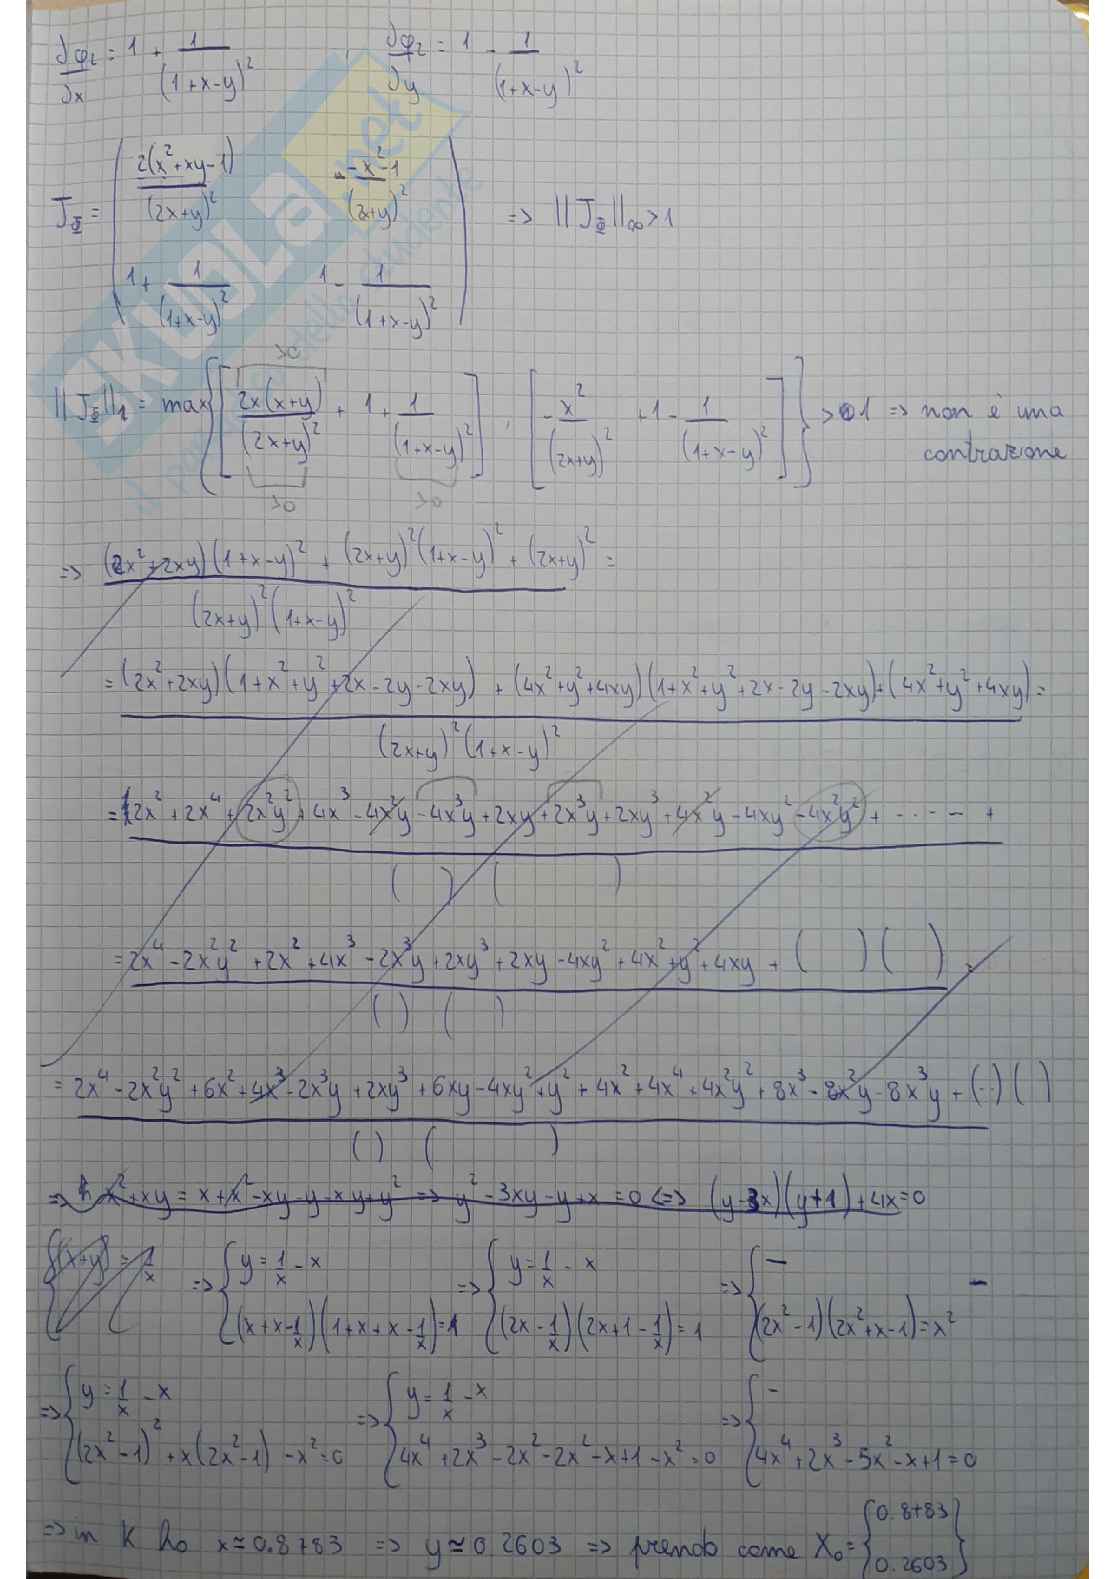 ∂φ₂/∂x = 1 + 1/(1+x-y)² , ∂φ₂/∂y = 1 - 1/(1+x-y)²
J_Φ = ( 2(x²+xy-1)/(2x+y)² -x²-1/(2x+y)² => ||J_Φ||∞ > 1
1 + 1/(1+x-y)² 1 - 1/(1+x-y)² )
>0
||J_Φ||₁ = max{[ 2x(x+y)/(2x+y)² + 1 + 1/(1+x-y)² ], [ -x²/(2x+y)² + 1 - 1/(1+x-y)² ]} > 1 => non è una
contrazione
>0 >0
=> (2x²+2xy)(1+x-y)² + (2x+y)²(1+x-y)² + (2x+y)² =
(2x+y)²(1+x-y)²
= (2x²+2xy)(1+x²+y²+2x-2y-2xy) + (4x²+y²+4xy)(1+x²+y²+2x-2y-2xy)+(4x²+y²+4xy) =
(2x+y)²(1+x-y)²
= 2x²+2x⁴+2x²y²+4x³-4x²y-4x³y+2xy+2x³y+2xy³+4x²y-4xy²-4x²y² + ..... +
( ) ( )
= 2x⁴-2x²y²+2x²+4x³-2x³y+2xy³+2xy-4xy²+4x²+y²+4xy + ( ) ( )
( ) ( )
= 2x⁴-2x²y²+6x²+4x³-2x³y+2xy³+6xy-4xy²+y²+4x²+4x⁴+4x²y²+8x³-8x²y-8x³y + (..) ( )
( ) ( )
=> x²+xy = x+x²-xy-y-xy+y² => y²-3xy-y+x=0 <=> (y-3x)(y+1)+4x=0
{ (x+y) = 1/x => { y = 1/x - x => { y = 1/x - x => { —
{ (x+x-1/x)(1+x+x-1/x)=1 { (2x-1/x)(2x+1-1/x)=1 { (2x²-1)(2x²+x-1)=x²
=> { y = 1/x - x => { y = 1/x - x => { -
{ (2x²-1)²+x(2x²-1)-x²=0 { 4x⁴+2x³-2x²-2x²-x+1-x²=0 { 4x⁴+2x³-5x²-x+1=0
=> in K ho x≃0.8783 => y≃0.2603 => prendo come X₀ = { 0.8783
0.2603 }
SKUOLA.net